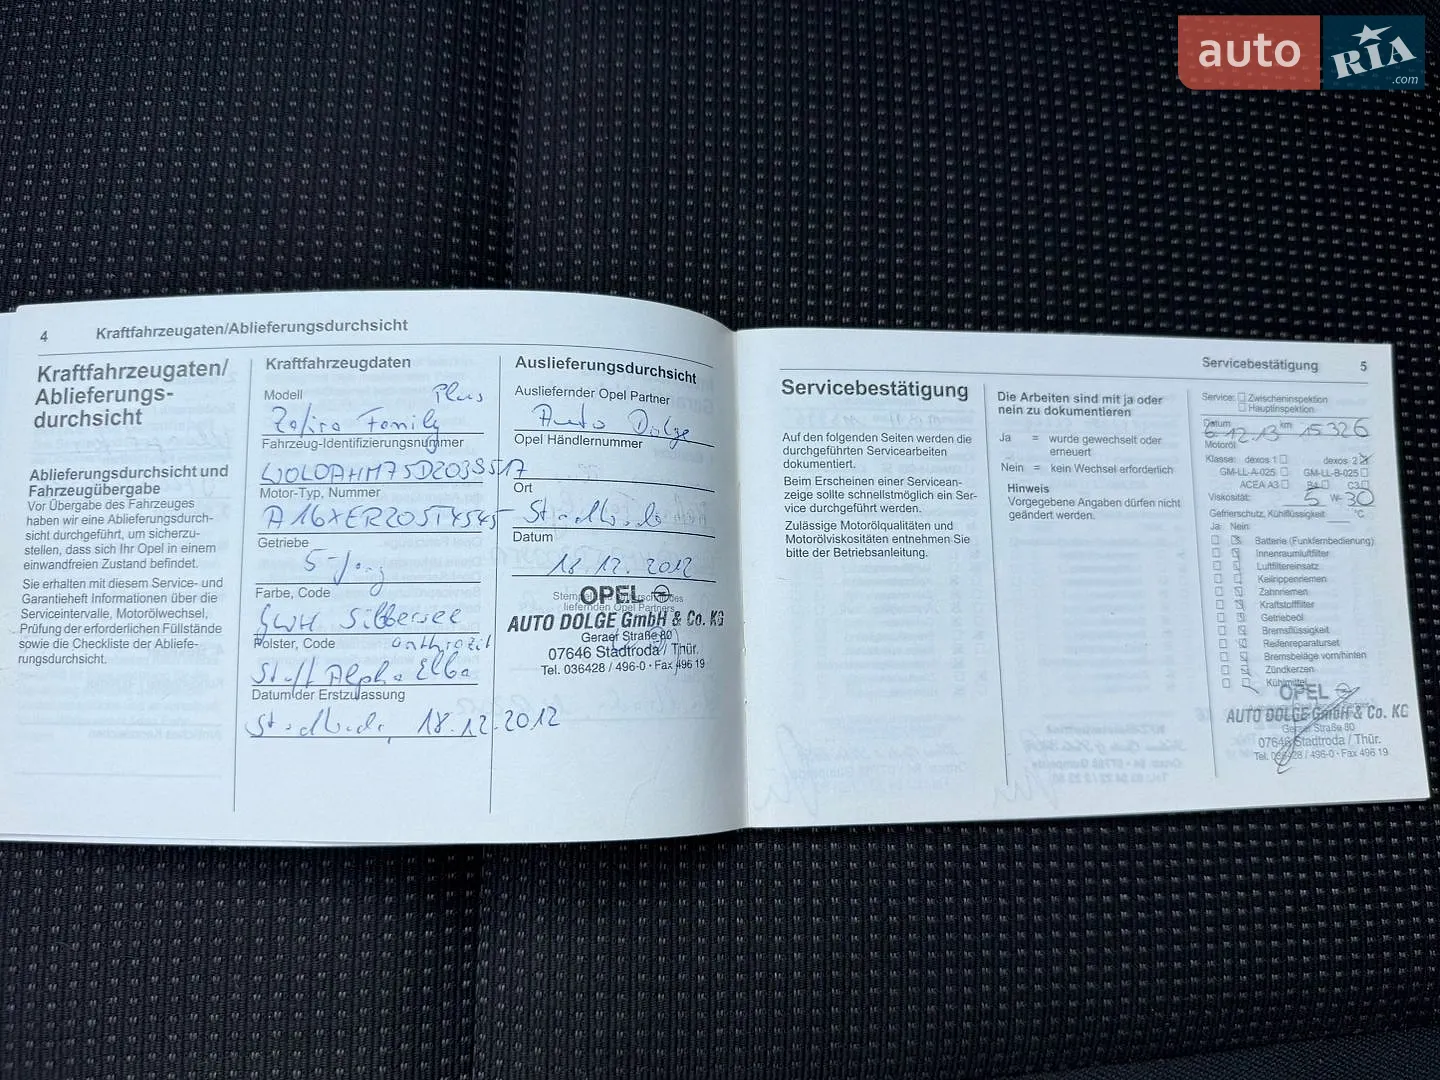 auto RIA.com
4 Kraftfahrzeugaten/Ablieferungsdurchsicht
Kraftfahrzeugaten/
Ablieferungs-
durchsicht
Ablieferungsdurchsicht und
Fahrzeugübergabe
Vor Übergabe des Fahrzeuges
haben wir eine Ablieferungsdurch-
sicht durchgeführt, um sicherzu-
stellen, dass sich Ihr Opel in einem
einwandfreien Zustand befindet.
Sie erhalten mit diesem Service- und
Garantieheft Informationen über die
Serviceintervalle, Motorölwechsel,
Prüfung der erforderlichen Füllstände
sowie die Checkliste der Abliefe-
rungsdurchsicht.
Kraftfahrzeugdaten
Modell Plus
Zafira Family
Fahrzeug-Identifizierungsnummer
W0L0AHM75D2039517
Motor-Typ, Nummer
A16XER20ST4545
Getriebe
5-Gang
Farbe, Code
GWH Silbersee
Polster, Code anthrazit
Stoff Alpha Elba
Datum der Erstzulassung
Stadtroda, 18.12.2012
Auslieferungsdurchsicht
Ausliefernder Opel Partner
Auto Dolge
Opel Händlernummer
Ort
Stadtroda
Datum
18.12.2012
Stempel
liefernden Opel Partners
OPEL
AUTO DOLGE GmbH & Co. KG
Geraer Straße 80
07646 Stadtroda / Thür.
Tel. 036428 / 496-0 · Fax 496 19
Servicebestätigung 5
Servicebestätigung
Auf den folgenden Seiten werden die
durchgeführten Servicearbeiten
dokumentiert.
Beim Erscheinen einer Servicean-
zeige sollte schnellstmöglich ein Ser-
vice durchgeführt werden.
Zulässige Motorölqualitäten und
Motorölviskositäten entnehmen Sie
bitte der Betriebsanleitung.
Die Arbeiten sind mit ja oder
nein zu dokumentieren
Ja = wurde gewechselt oder
erneuert
Nein = kein Wechsel erforderlich
Hinweis
Vorgegebene Angaben dürfen nicht
geändert werden.
Service: Zwischeninspektion
Hauptinspektion
Datum 6.12.13 km 15326
Motoröl
Klasse: dexos 1 dexos 2
GM-LL-A-025 GM-LL-B-025
ACEA A3 B4 C3
Viskosität: 5 W- 30
Gefrierschutz, Kühlflüssigkeit °C
Ja Nein
Batterie (Funkfernbedienung)
Innenraumluftfilter
Luftfiltereinsatz
Keilrippenriemen
Zahnriemen
Kraftstofffilter
Getriebeöl
Bremsflüssigkeit
Reifenreparaturset
Bremsbeläge vorn/hinten
Zündkerzen
Kühlmittel
OPEL
AUTO DOLGE GmbH & Co. KG
Geraer Straße 80
07646 Stadtroda / Thür.
Tel. 036428 / 496-0 · Fax 496 19